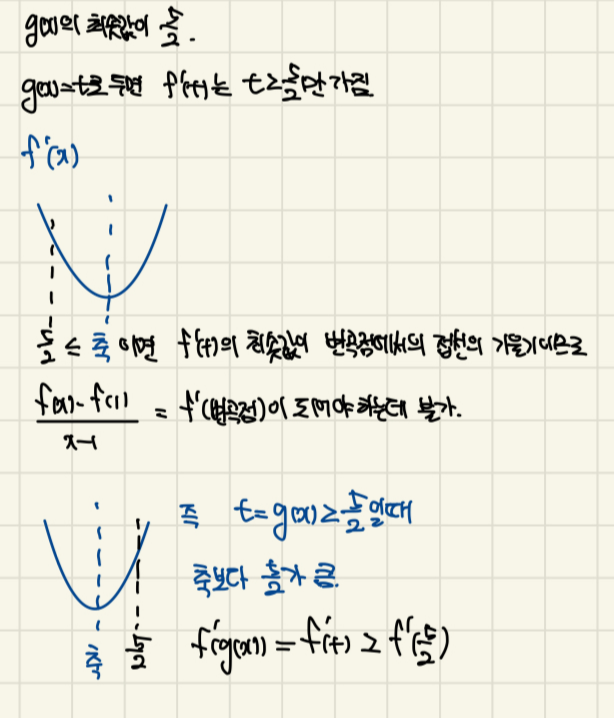 g(x)의 최솟값이 5/2.
g(x)=t로 두면 f'(t)는 t≥5/2만 가짐
f'(x)
5/2 ≤ 축 이면 f'(t)의 최솟값이 변곡점에서의 접선의 기울기이므로
(f(x)-f(1))/(x-1) = f'(변곡점)이 되어야 하는데 불가.
즉 t=g(x)≥5/2일때
축보다 5/2가 큼.
축 5/2
f'(g(x))=f'(t)≥f'(5/2)